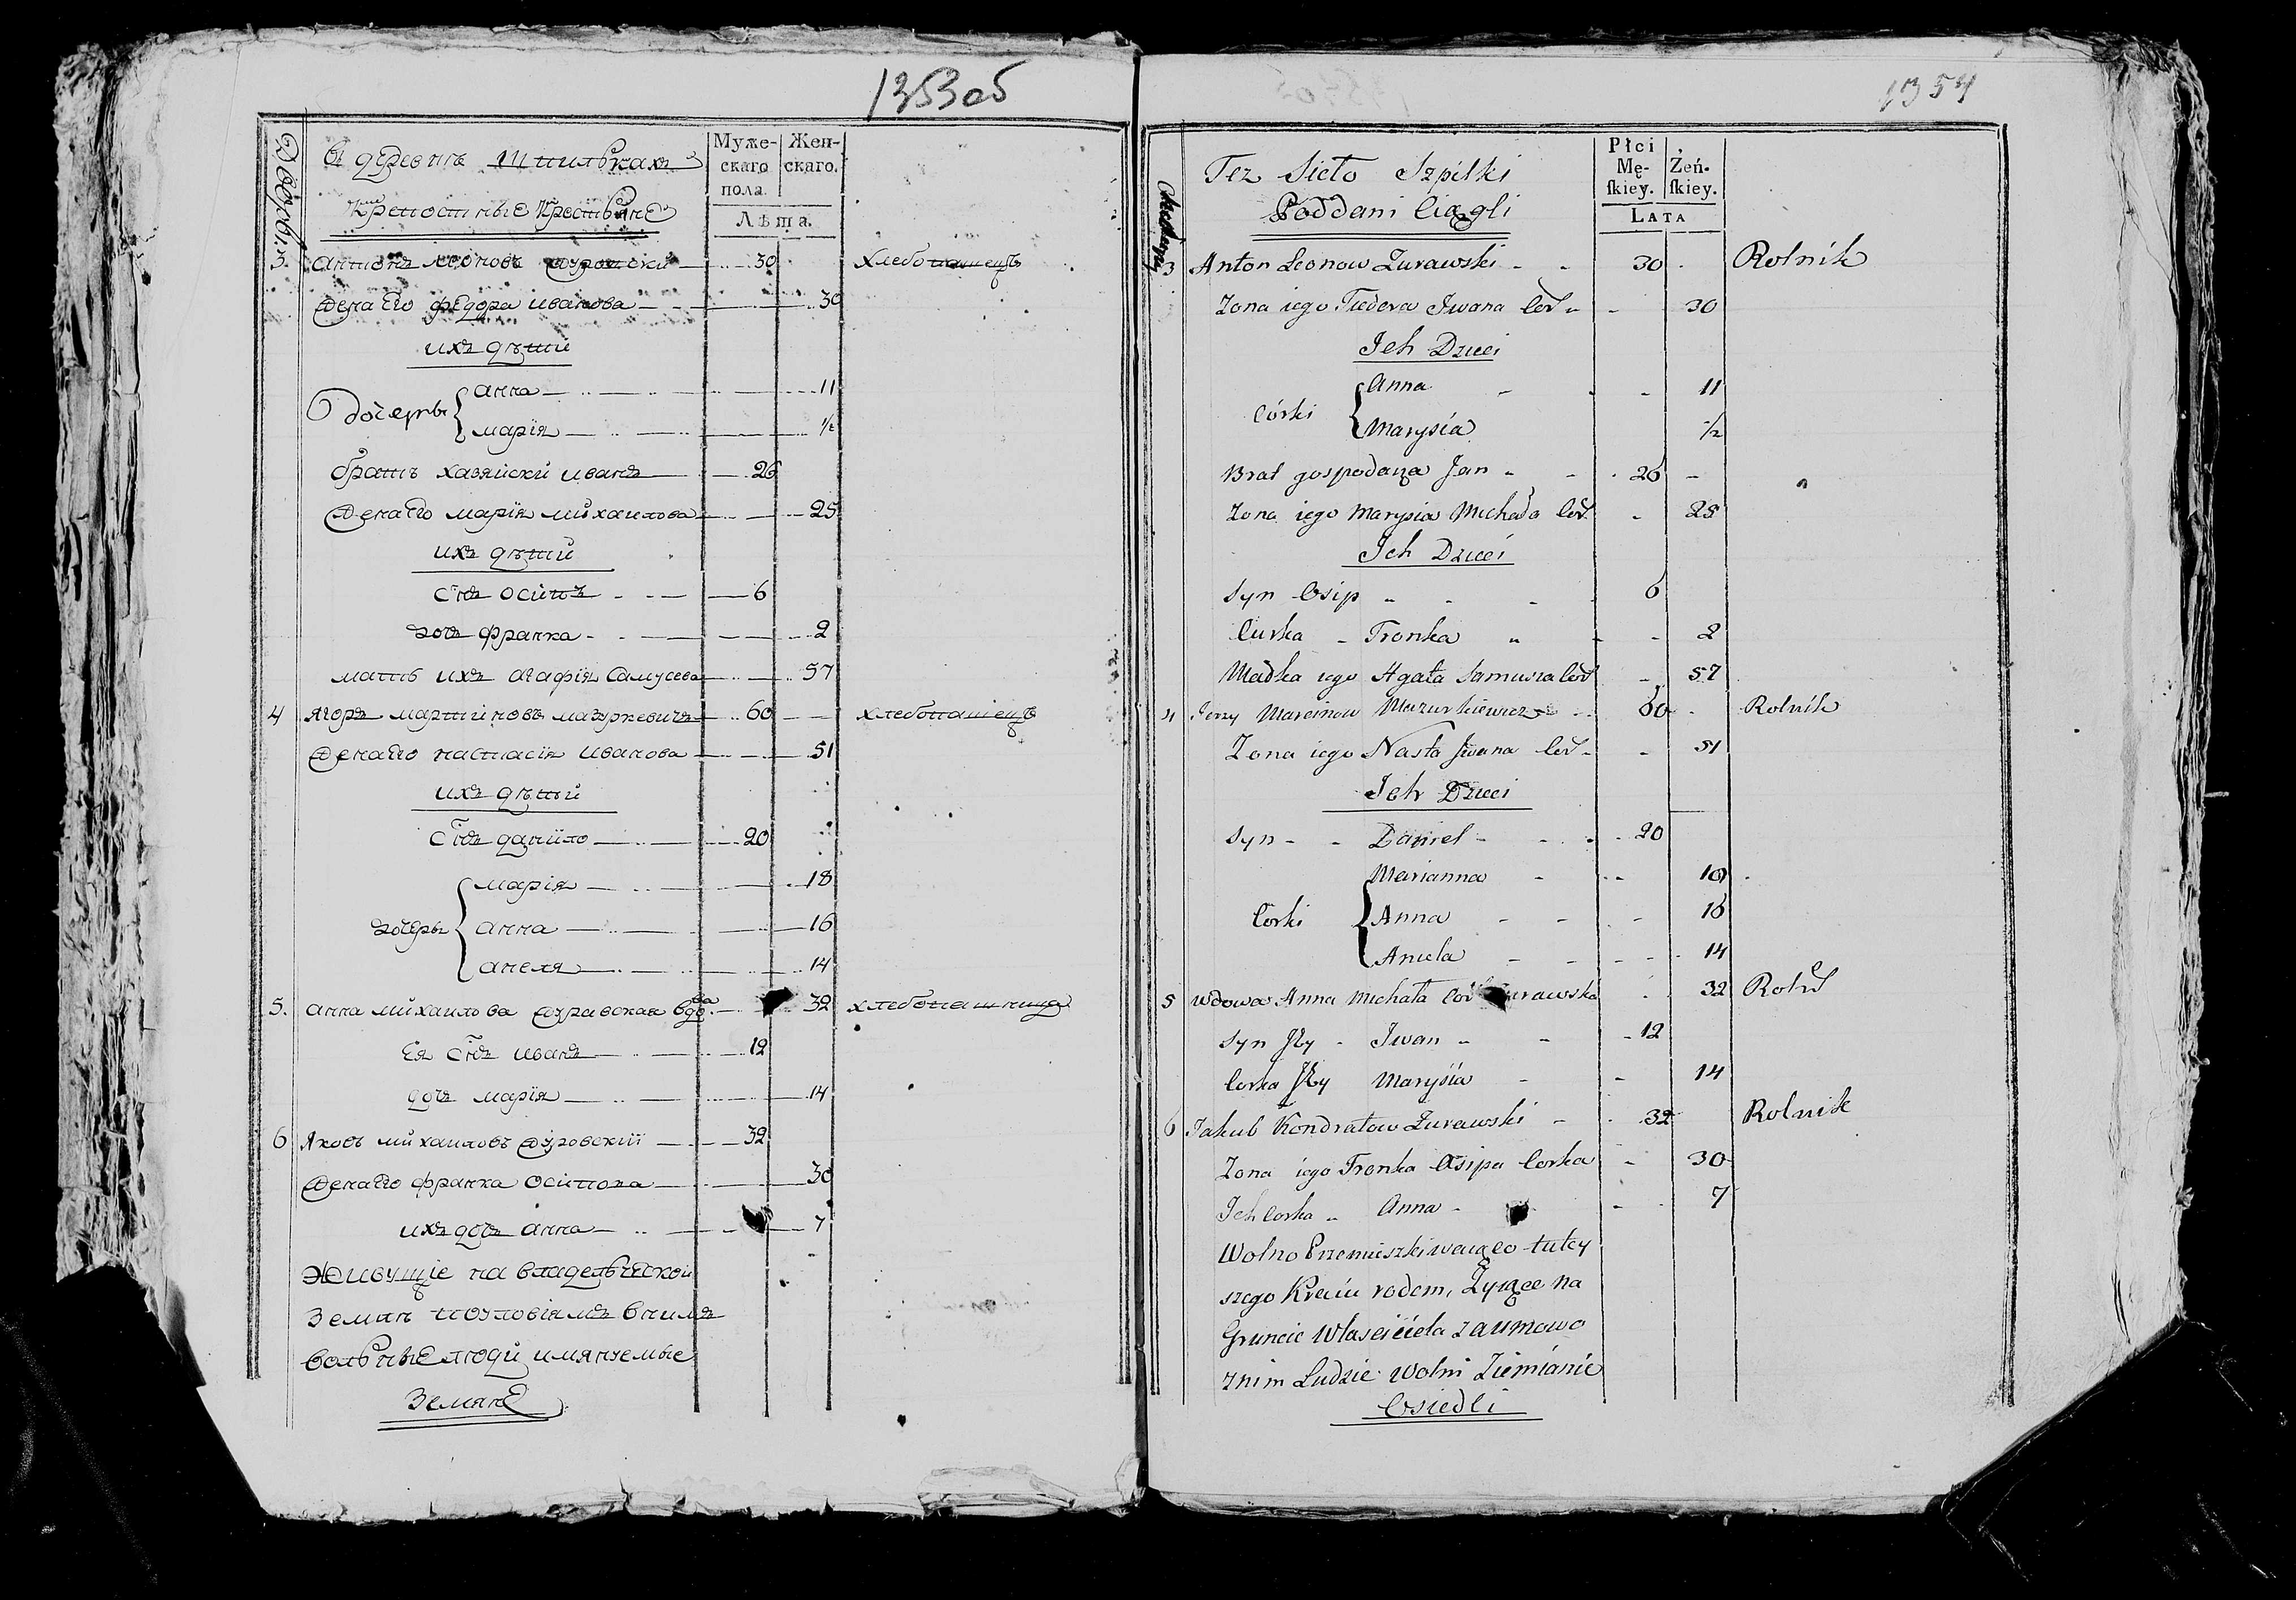 1353об
Дворы.
въ деревнѣ шпилькахъ
Крепостные Крестьяне
Муже-
скаго
пола.
Жен-
скаго.
Лѣта.
3. антонъ леоновъ журавски 30 хлебопашецъ
жена его федора иванова 30
ихъ дѣти
дочеры { анна 11
марія ½
братъ хазяйски иванъ 26
жена его марія михаилова 25
ихъ дѣти
снъ осипъ 6
дочь франка 2
мать ихъ агафія Самусева 57
4 ягоръ мартиновъ мазуркевичъ 60 хлебопашецъ
жена его настасія иванова 51
ихъ дѣти
Снъ данило 20
дочеры { марія 18
анна 16
анеля 14
5. анна михаилова журавская вдова 32 хлебопашница
Ея снъ иванъ 12
дочъ марія 14
6 яковъ михаиловъ журовскій 32
жена его франка осипова 30
ихъ дочъ анна 7
Живущіе на владельческой
земли поусловіямъ внимъ
вольные люди имянуемые
Земяне
1354
Chałupy
Tez Sieło Szpilki
Poddani Ciągli
Płci
Mę-
skiey.
Żeń-
skiey.
LATA
3 Anton Leonow Zurawski 30 Rolnik
Zona iego Fiedora Jwana Cor 30
Jch Dzieci
Córki { Anna 11
Marysia ½
Brat gospodarza Jan 26
Zona iego Marysia Michała Cor. 25
Jch Dzieci
Syn Osip 6
Curka Fronka 2
Madka iego Agata Samusza Cor 57
4 Jerzy Marcinow Mazurkiewicz 60 Rolnik
Zona iego Nasta Jwana Cor 51
Jch Dzieci
Syn Daniel 20
Corki { Marianna 18
Anna 16
Aniela 14
5 Wdowa Anna Michała Cor Zurawska 32 Rolń
Syn Jey Jwan 12
Corka Jey Marysia 14
6 Jakub Kondratow Zurawski 32 Rolnik
Zona iego Fronka Osipa Corka 30
Jch Corka Anna 7
Wolno Przemieszkiwaiąco tutey
szego Kraiu rodem, Zyiące na
Gruncie Własciciela zaumowo
znim Ludzie wolni Ziemianie
Osiedli